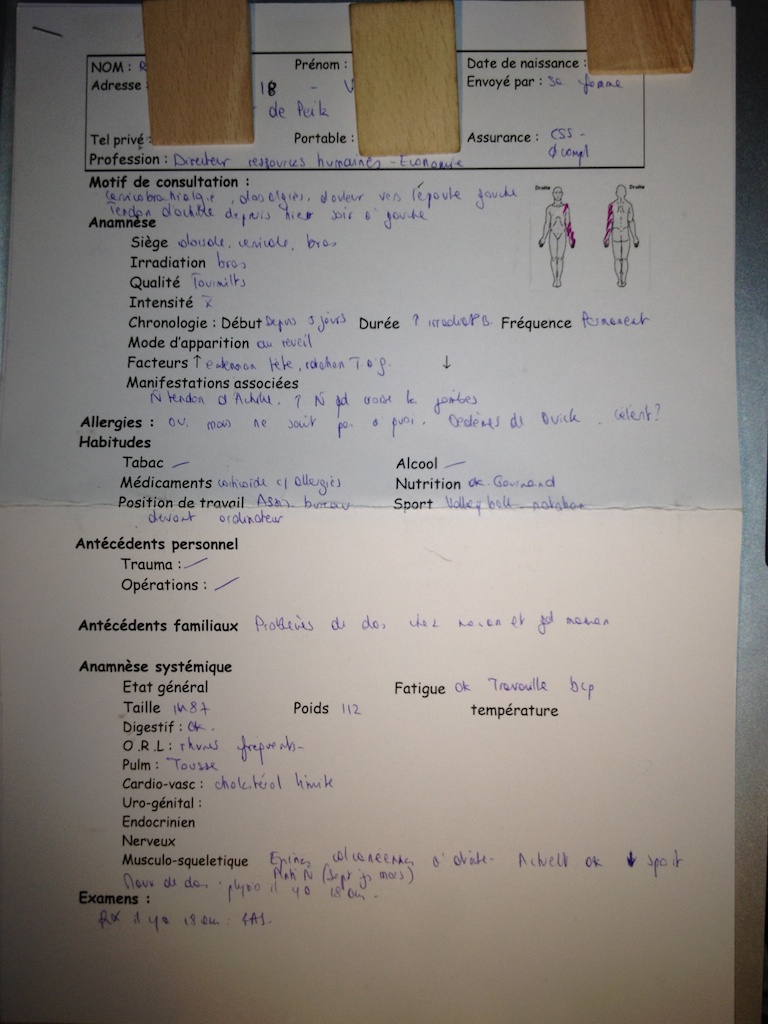 NOM : Prénom : Date de naissance :
Adresse 18 - V Envoyé par : sa femme
de Peik
Tel privé : Portable : Assurance : CSS -
Ø compl
Profession : Directeur ressources humaines - Economie
Motif de consultation :
Cervicobrachialgie, dorsalgies, douleur vers l'épaule gauche
Tendon d'achille depuis hier soir à gauche
Droite Droite
Anamnèse
Siège dorsale, cervicale, bras
Irradiation bras
Qualité
Intensité
Chronologie : Début Depuis 3 jours Durée ↑ Fréquence Permanent
Mode d'apparition au reveil
Facteurs ↑ extension tête, rotation T. à g. ↓
Manifestations associées
tendon d'Achille, ↑ qd croise les jambes
Allergies : oui mais ne sait pas à quoi. Oedèmes de Quick. Céleri?
Habitudes
Tabac — Alcool —
Médicaments corticoide c/ allergies Nutrition ok Gourmand
Position de travail Assis bureau Sport Volley ball - natation
devant ordinateur
Antécédents personnel
Trauma : —
Opérations : —
Antécédents familiaux Problèmes de dos chez maman et gd maman
Anamnèse systémique
Etat général Fatigue ok Travaille bcp
Taille 1m87 Poids 112 température
Digestif : ok.
O.R.L : rhumes fréquents -
Pulm : Tousse
Cardio-vasc : cholestérol limite
Uro-génital :
Endocrinien
Nerveux
Musculo-squeletique Epines calcanéennes à droite - Actuellt ok ↓ sport
(Sept jq mars)
Maux de dos : physio il y a 18 ans.
Examens :
RX il y a 18 ans :